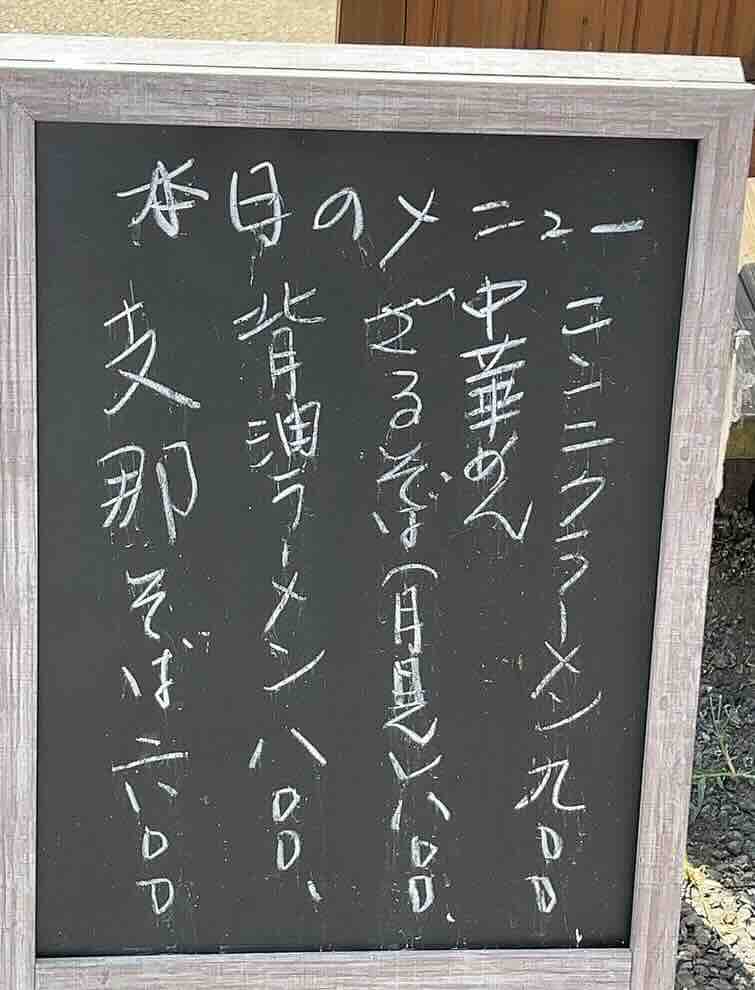 本日のメニュー
ニンニクラーメン九〇〇
中華めん
ざるそば(月見)八〇〇
背油ラーメン八〇〇
支那そば六〇〇